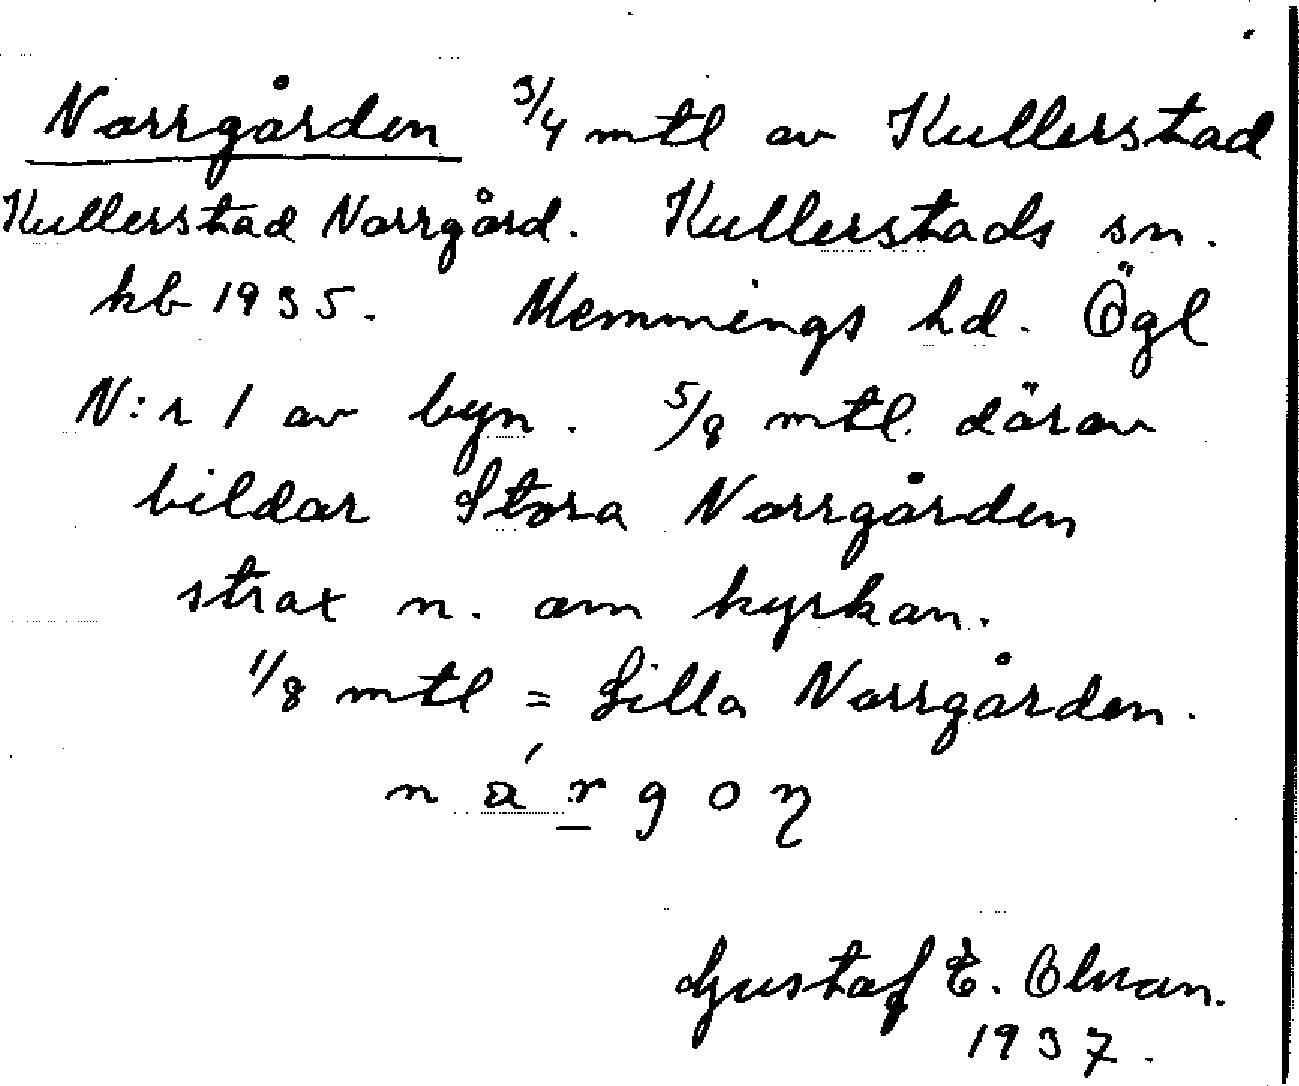 Norrgården 3/4 mtl av Kullerstad
Kullerstad Norrgård. Kullerstads sn.
kb 1935. Memmings hd. Ögl
N:r 1 av byn. 5/8 mtl. därav
bildar Stora Norrgården
strax n. om kyrkan.
1/8 mtl = Lilla Norrgården.
Gustaf E.
1937.